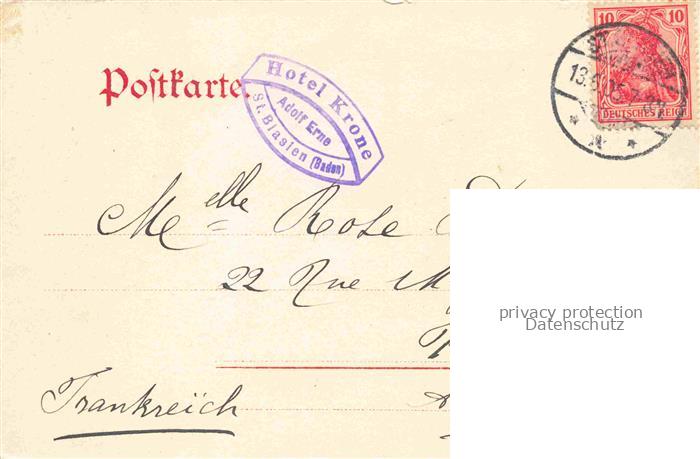 Postkarte.
Hotel Krone
Adolf Erne
St. Blasien (Baden)
10 10
DEUTSCHES REICH
Melle Rose
22 Rue
Frankreich
privacy protection
Datenschutz